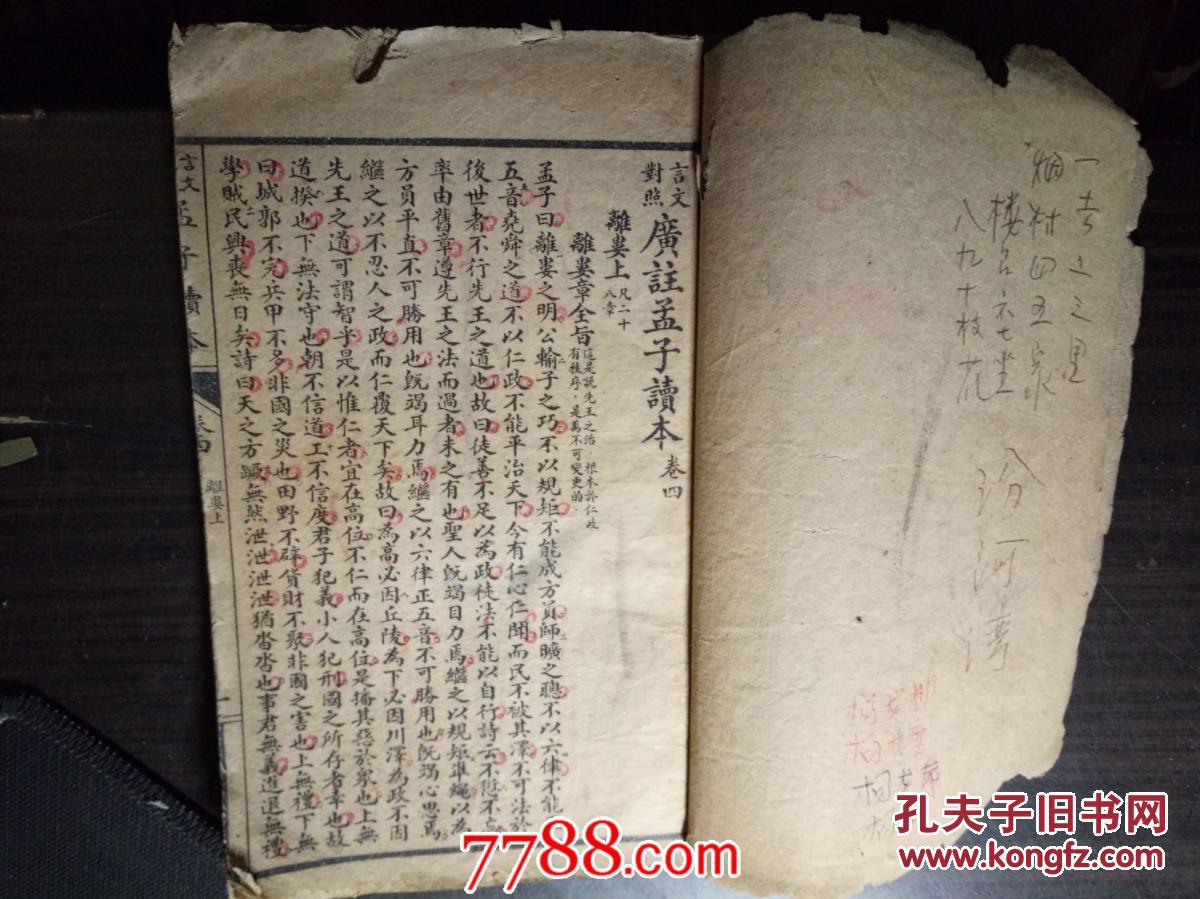 一去二三里
烟村四五家
楼台六七坐
八九十枝花
汾河湾
言文對照 廣註孟子讀本 卷四
離婁上 凡二十八章
離婁章全旨 這是說先王之治，根本於仁政，有秩序，是萬不可變更的。
孟子曰離婁之明公輸子之巧不以規矩不能成方員師曠之聰不以六律不能
五音堯舜之道不以仁政不能平治天下今有仁心仁聞而民不被其澤不可法於
後世者不行先王之道也故曰徒善不足以為政徒法不能以自行詩云不愆不忘
率由舊章遵先王之法而過者未之有也聖人旣竭目力焉繼之以規矩準繩以為
方員平直不可勝用也旣竭耳力焉繼之以六律正五音不可勝用也旣竭心思焉
繼之以不忍人之政而仁覆天下矣故曰為高必因丘陵為下必因川澤為政不因
先王之道可謂智乎是以惟仁者宜在高位不仁而在高位是播其惡於衆也上無
道揆也下無法守也朝不信道工不信度君子犯義小人犯刑國之所存者幸也故
曰城郭不完兵甲不多非國之災也田野不辟貨財不聚非國之害也上無禮下無
學賊民興喪無日矣詩曰天之方蹶無然泄泄泄泄猶沓沓也事君無義進退無禮
言文孟子讀本 卷四 離婁上 一
7788.com
孔夫子旧书网
www.kongfz.com